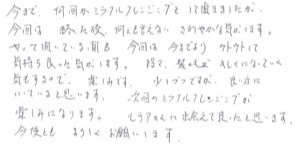 今まで、何回かミラクルフレンジングをして頂きましたが、
今回は 終った後、何とも言えない さわやかな気がします。
やって頂いている間も 今回は 今までより ウトウトして
気持ち良った気がします。 指で、髪の毛が キレイになっていく
気もするので、楽しみです。 少しづつですが、良い方に
いていると思います。 次回のミラクルフレンジングが
楽しみになります。 に出会えて良かったと思います。
今後とも よろしくお願いします。